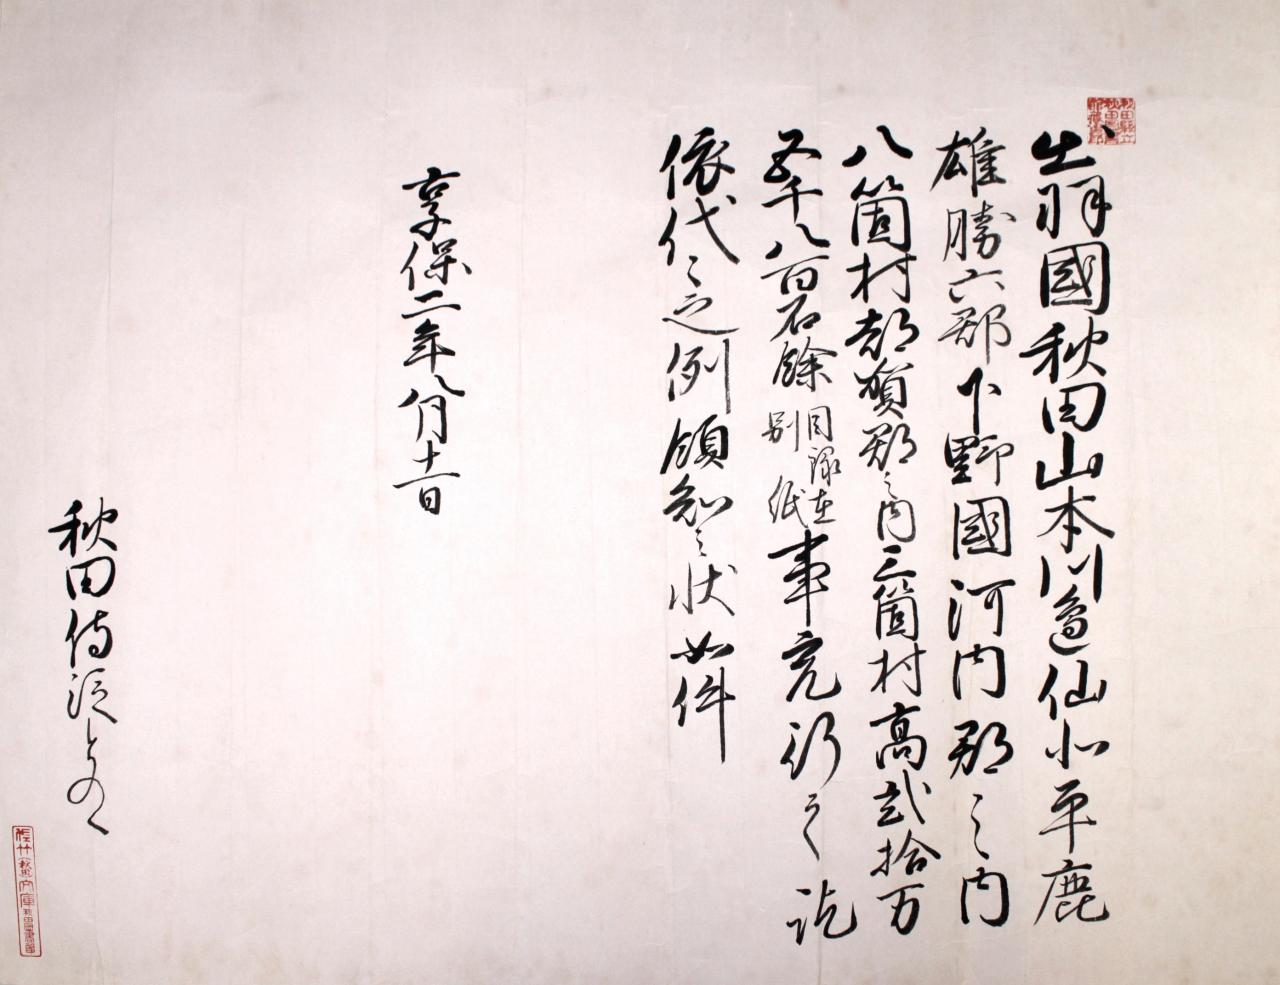 出羽國秋田山本川邊仙北平鹿
雄勝六郡下野國河内郡之内
八箇村都賀郡之内三箇村高貳拾万
五千八百石餘目録在別紙事充行之訖
依代々之例領知之状如件
享保二年八月十一日
秋田侍従とのへ